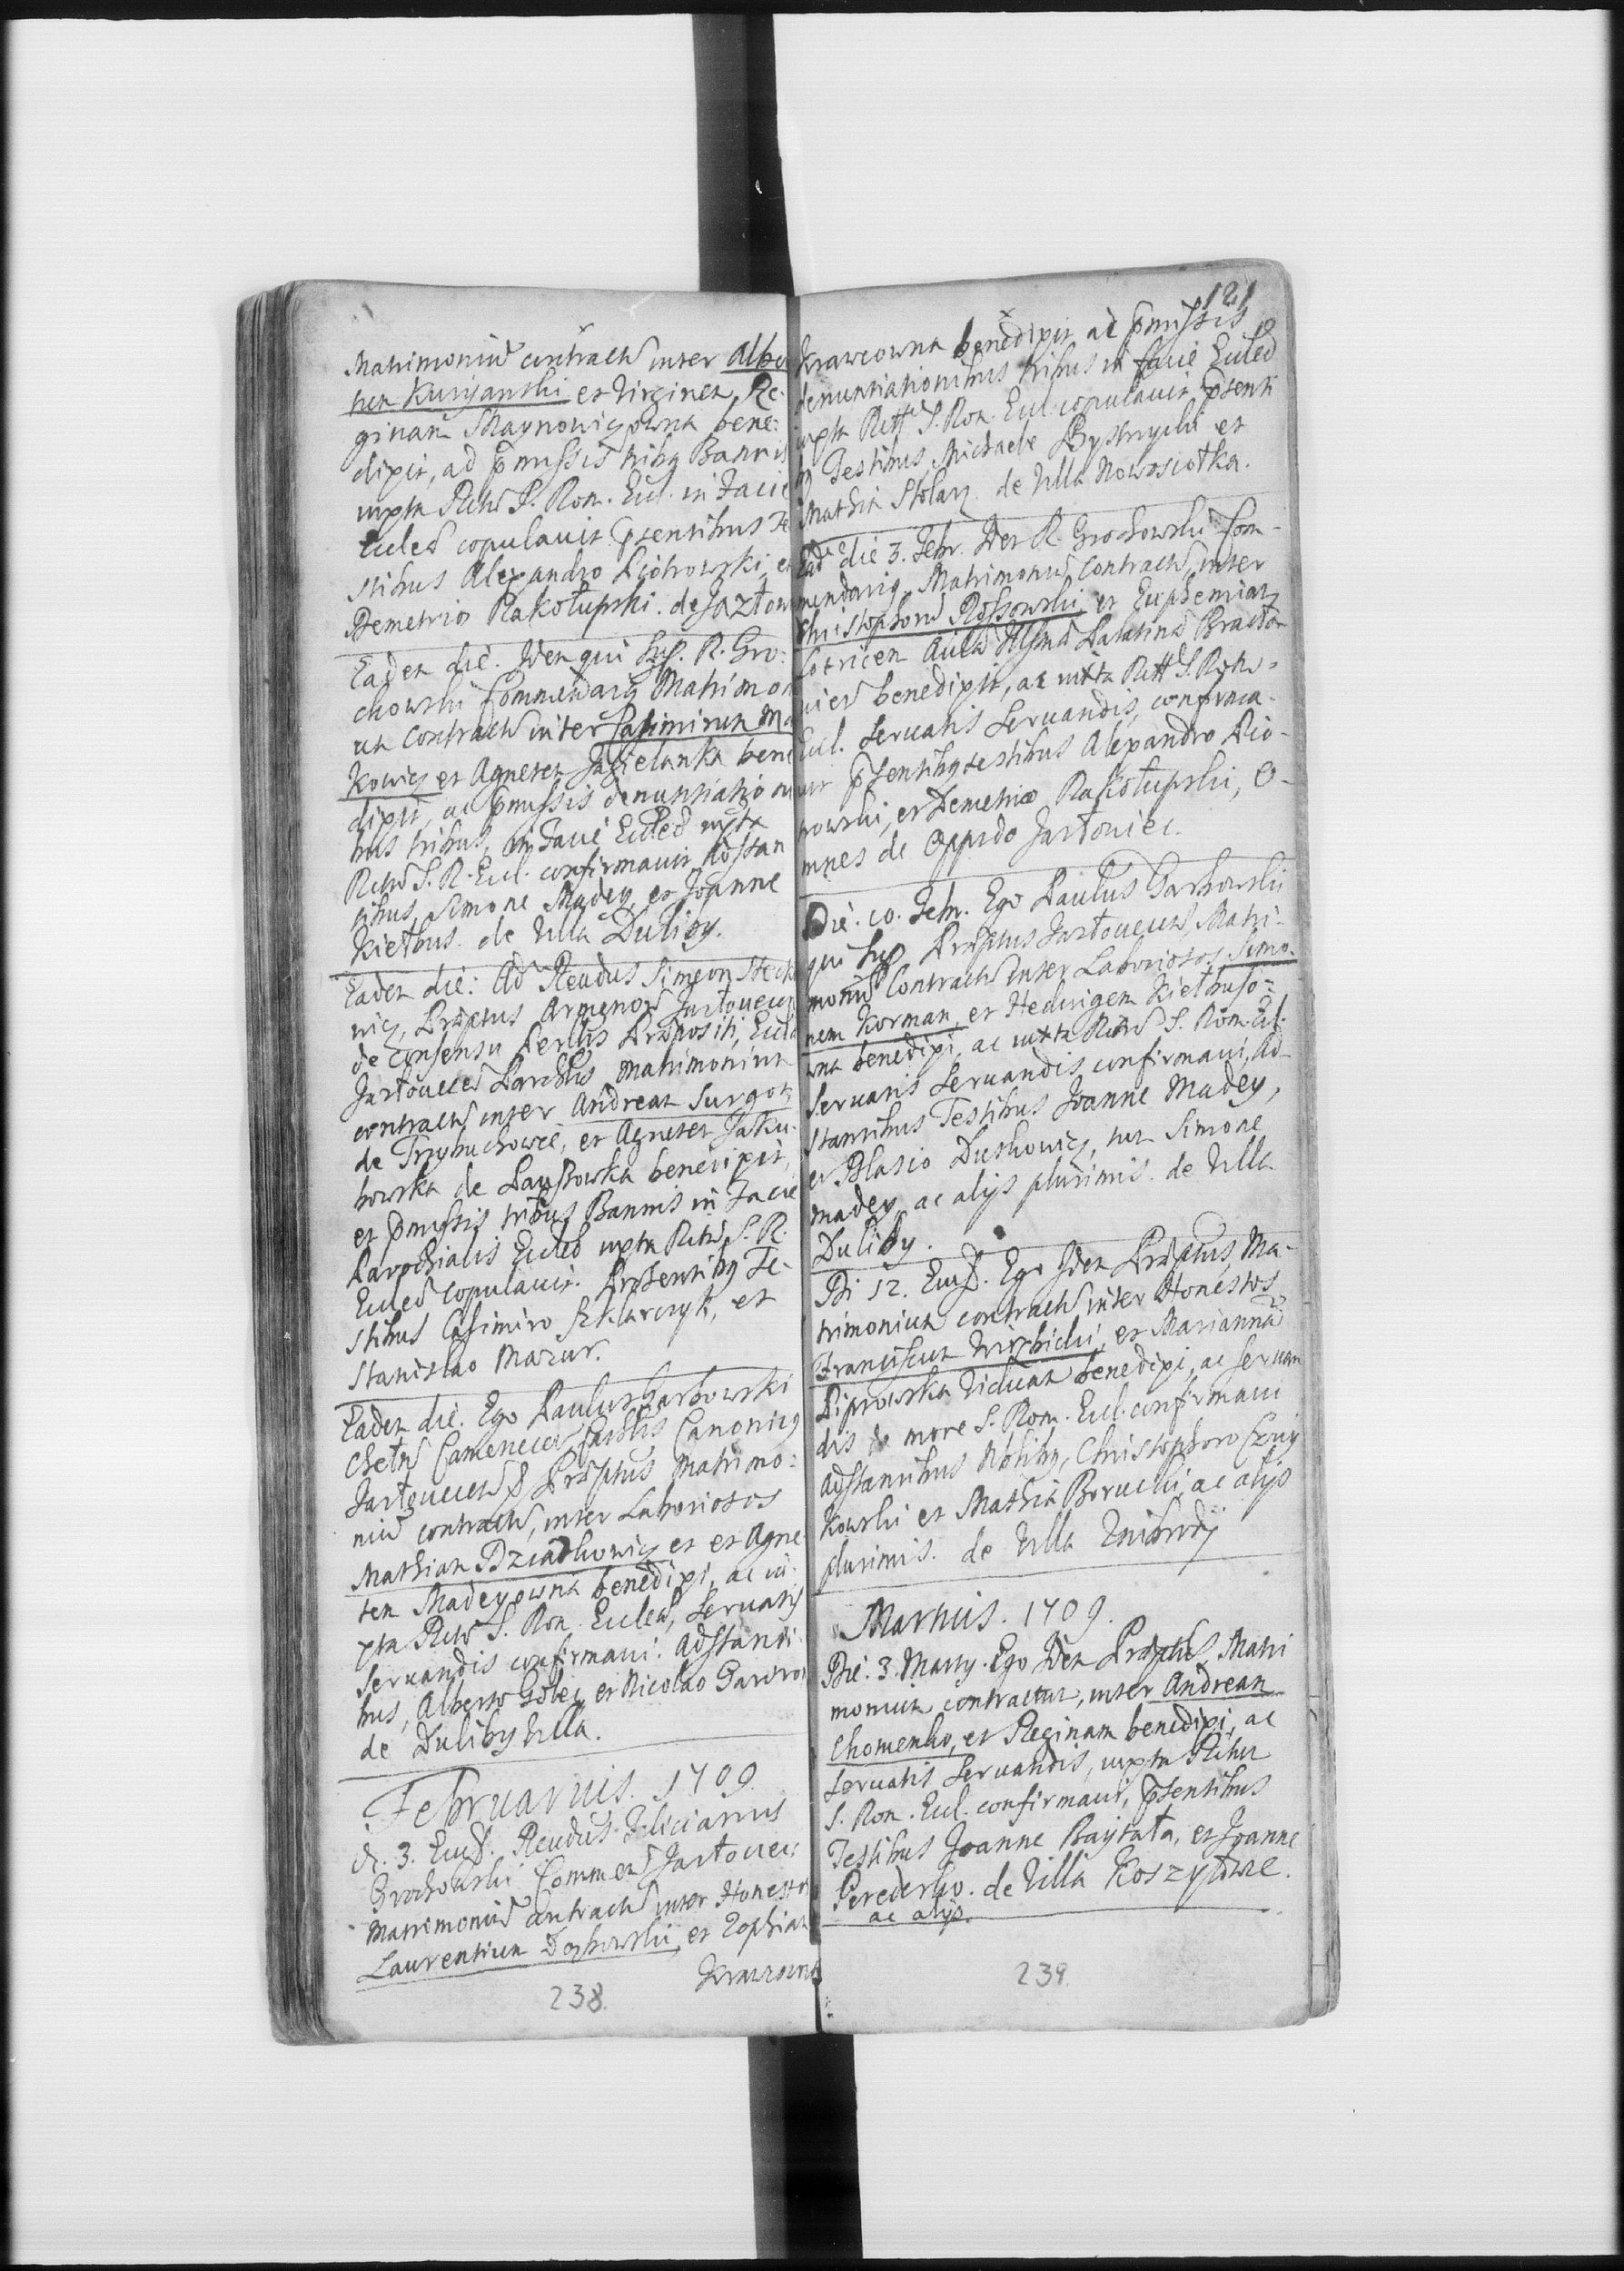 Matrimoniũ contractũ inter Alber
tum Kurijanski et Virginem Re-
ginam Maynowiczowna bene:
dixit, ac p̃missis tribq Bannis
iuxta Ritũ S. Rom. Eccl. in Facie
Eccleæ copulavit p̃sentibus Te
stibus Alexandro Piotrowski, et
Demetrio Rakołupski. de Jazłow
Eadem die. Idem qui sup. R. Gro:
chowski Commendariq Matrimoni
um contractũ inter Casimirum Ma
kowicz et Agnetem Jagielanka bene
dixit, ac p̃missis denuntiationi
bus tribus, in Facie Eccleæ iuxta
Ritũ S. R. Eccl. confirmavit, Adstan
tibus Simone Madey, et Joanne
Kiełbus. de Villa Duliby.
Eadem die: Ad Rendus Simeon
wicz, Præptus Armenorũ Jazłovecen
de Consensu Perlis Præpositi, Eccle
Jazłovecen Parchlis Matrimonium
contractũ inter Andream Surgot,
de Trzybuchowce, et Agnetem Jaku-
bowska de Pauszowka benedixit,
et p̃missis tribus Bannis in Facie
Parochialis Eccleæ iuxta Ritũ S. R.
Eccleæ copulavit. Præsentibq Te-
stibus Casimiro Szklarczyk, et
Stanislao Mazur.
Eadem die. Ego Paulus Garbowski
Camenecen Canonicq
Jazłovecen Præptus Matrimo:
niũ contractũ, inter Laboriosos
Mathiam Dziadkowicz et et Agne
tem Madeyowna benedixi, ac iu-
xta Ritũ S. Rom. Eccleæ, Servatis
Servandis confirmavi. Adstanti-
bus, Alberto Golec et Nicolao Gawron
de Duliby Villa.
Februarius. 1709.
D. 3. Eiusd. Rendus Felicianus
Grochowski Commen Jazłovec:
Matrimoniũ contractũ inter Honestos
Laurentium et Zophiam
Krawcowna
238.
121
Krawcowna benedixit ac p̃missis
denuntiationibus tribus in facie Eccleæ
iuxta Rittũ S. Rom. Eccl. copulavit p̃senti
bq Testibus Michaele Bystrycki et
Mathia Stolarz. de Villa Nowosiołka.
Ead die 3. Febr. Idem R. Grochowski Com-
mendariq. Matrimoniũ contractũ, inter
Christophorũ Rossowski et Euphemiam
Lotricem Aulæ Illsmi Palatini Bracła
vien benedixit, ac iuxta Rittũ S. Rom-
Eccl. Servatis Servandis, confirma-
vit p̃sentibq testibus Alexandro Pio-
trowski, et Demetrio Rakołupski, O-
mnes de Oppido Jazłoviec.
Die. 10. Febr. Ego Paulus Garbowski
qui sup Præptus Jazłovecen, Matri-
moniũ Contractũ inter Laboriosos Simo-
nem Korman, et Hedvigem Kiełbuso-
wna benedixi, ac iuxta Ritũ S. Rom. Ecl.
Servatis Servandis confirmavi, Ad-
stantibus Testibus Joanne Madey,
et Blasio Duskowicz, tum Simone
Madey, ac alijs plurimis. de Villa
Duliby.
Di 12. Eiusd. Ego Idem Præptus, Ma-
trimonium contractũ inter Honestos
Franciscum Wirzbicki, et Mariannã
Piprowska Viduam benedixi, ac servan
dis de more S. Rom. Eccl. confirmavi
Adstantibus Nobilibq, Christophoro Czay
kowski et Mathia Borucki, ac alijs
plurimis. de Villa Znibrody
Martius. 1709.
Die. 3. Martij. Ego Idem Præptus, Matri
monium contractum, inter Andream
Chomenko, et Reginam benedixi, ac
servatis Servandis, iuxta Ritum
S. Rom. Eccl. confirmavi, p̃sentibus
Testibus Joanne Baytała, et Joanne
Perederko. de Villa Koszyłowce.
ac alijs.
239.